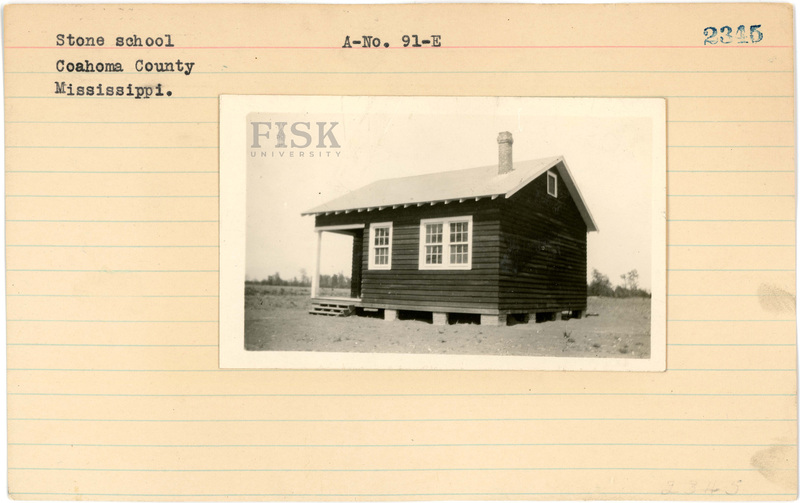 Stone school
A-No. 91-E
2345
Coahoma County
Mississippi.
FISK
UNIVERSITY